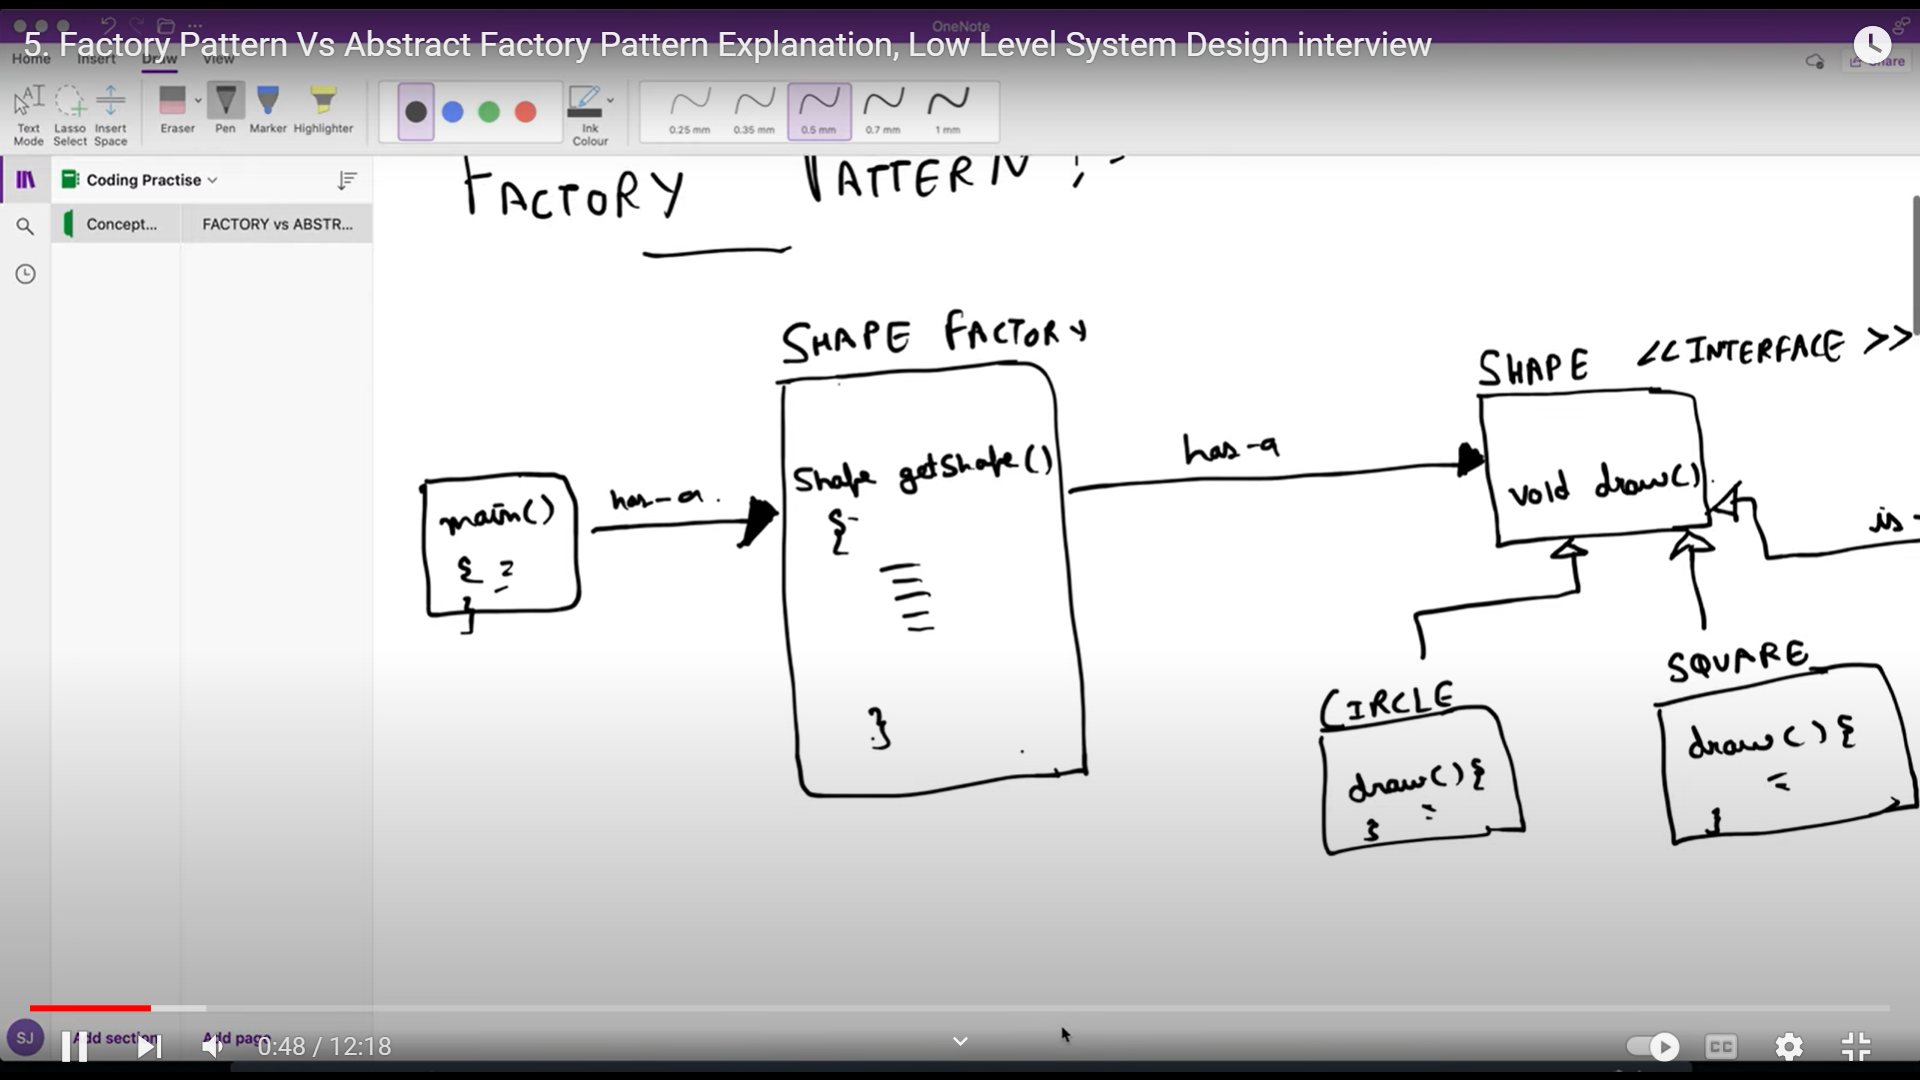 OneNote
5. Factory Pattern Vs Abstract Factory Pattern Explanation, Low Level System Design interview
Home Insert Draw View
Share
Text Mode
Lasso Select
Insert Space
Eraser
Pen
Marker
Highlighter
Ink Colour
0.25 mm
0.35 mm
0.5 mm
0.7 mm
1 mm
Coding Practise
Concept...
FACTORY vs ABSTR...
FACTORY PATTERN :-
SHAPE FACTORY
Shape getShape()
{
}
main()
{
}
has-a.
has-a
SHAPE <<INTERFACE>>
void draw()
is-
CIRCLE
draw(){
}
SQUARE
draw(){
}
SJ
Add section
Add page
0:48 / 12:18
CC